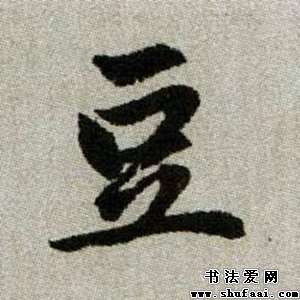 豆
书法爱网
www.shufaai.com